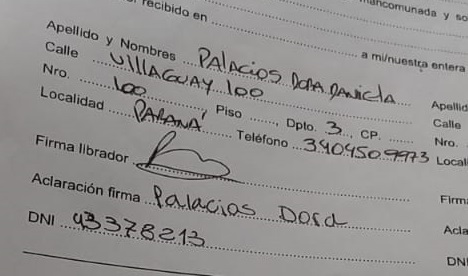 recibido en
ancomunada y so
a mi/nuestra entera
Apellido y Nombres Palacios Dora Daniela
Apellid
Calle Villaguay 100
Calle
Nro. 100, Piso ......, Dpto. 3 CP. ......
Nro.
Localidad PARANA' Teléfono 3404509973
Local
Firma librador
Firm
Aclaración firma Palacios Dora
Acla
DNI 43378213
DN